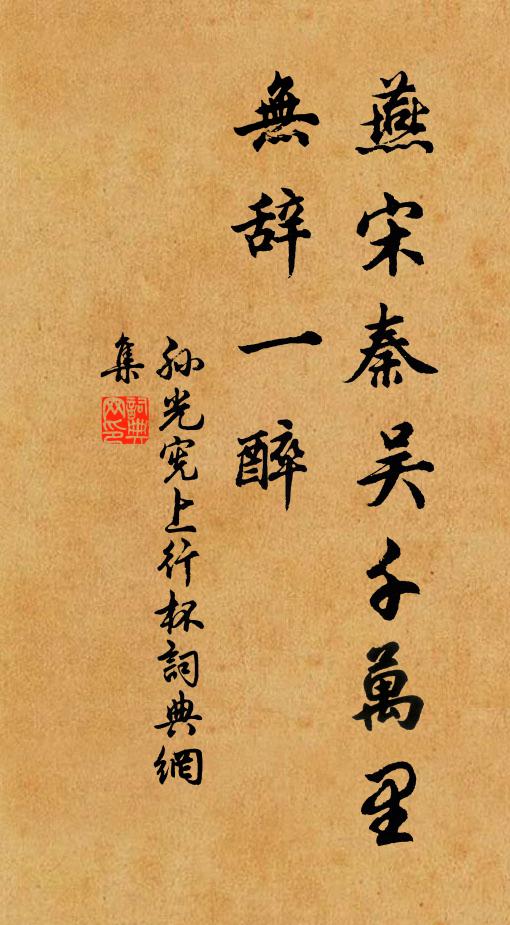 燕宋秦吴千萬里
無辞一醉
孫光宪上行杯詞典網
集
詞典
网印